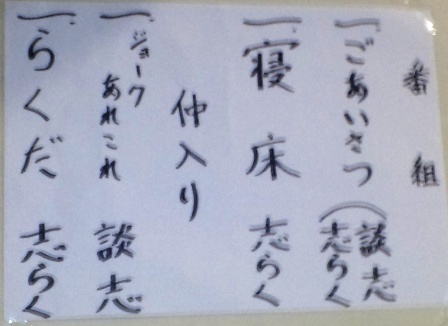 番組
一、ごあいさつ（談志 志らく）
一、寝床 志らく
仲入り
一、ジョークあれこれ 談志
一、らくだ 志らく